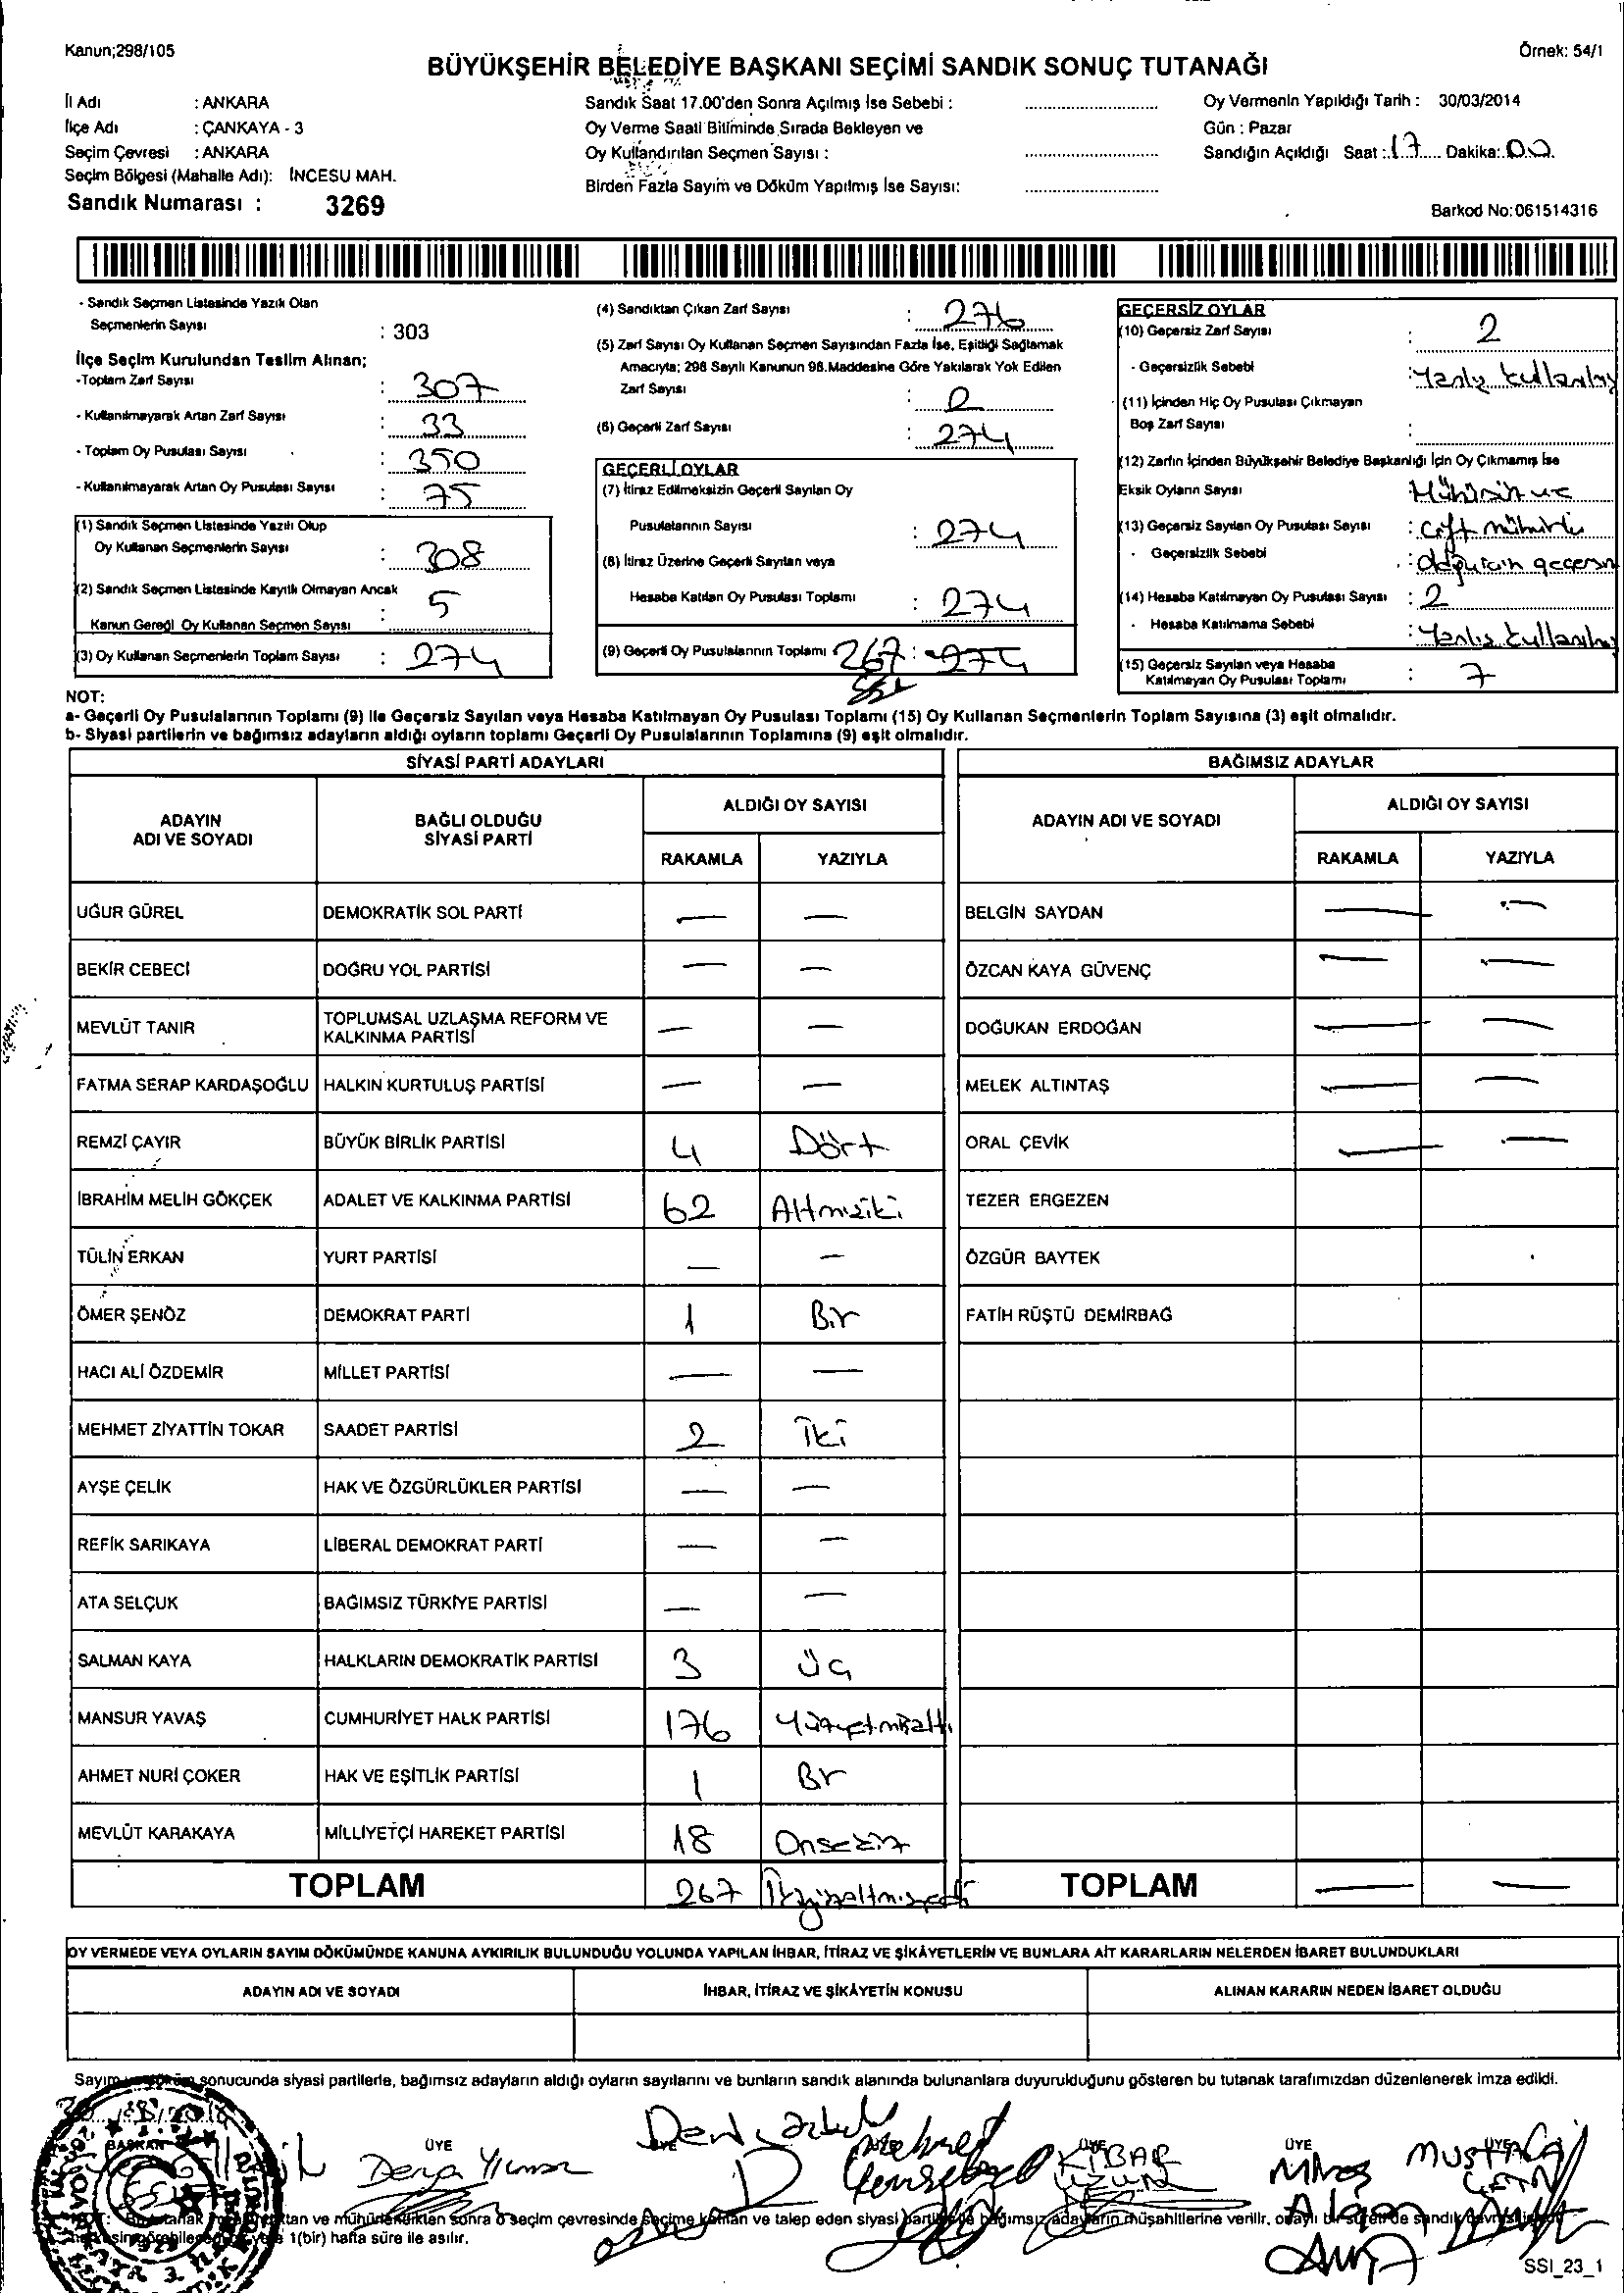 Kanun;298/105
Örnek: 54/1
BÜYÜKŞEHİR BELEDİYE BAŞKANI SEÇİMİ SANDIK SONUÇ TUTANAĞI
İl Adı : ANKARA
İlçe Adı : ÇANKAYA - 3
Seçim Çevresi : ANKARA
Seçim Bölgesi (Mahalle Adı): İNCESU MAH.
Sandık Numarası : 3269
Sandık Saat 17.00'den Sonra Açılmış İse Sebebi :
Oy Verme Saati Bitiminde Sırada Bekleyen ve
Oy Kullandırılan Seçmen Sayısı :
Birden Fazla Sayım ve Döküm Yapılmış İse Sayısı:
Oy Vermenin Yapıldığı Tarih : 30/03/2014
Gün : Pazar
Sandığın Açıldığı Saat : 17 Dakika: 00
Barkod No:061514316
- Sandık Seçmen Listesinde Yazılı Olan
Seçmenlerin Sayısı : 303
İlçe Seçim Kurulundan Teslim Alınan;
-Toplam Zarf Sayısı : 307
- Kullanılmayarak Artan Zarf Sayısı : 33
- Toplam Oy Pusulası Sayısı : 350
- Kullanılmayarak Artan Oy Pusulası Sayısı : 75
(1) Sandık Seçmen Listesinde Yazılı Olup
Oy Kullanan Seçmenlerin Sayısı : 308
(2) Sandık Seçmen Listesinde Kayıtlı Olmayan Ancak
Kanun Gereği Oy Kullanan Seçmen Sayısı : 5
(3) Oy Kullanan Seçmenlerin Toplam Sayısı : 274
(4) Sandıktan Çıkan Zarf Sayısı : 276
(5) Zarf Sayısı Oy Kullanan Seçmen Sayısından Fazla İse, Eşitliği Sağlamak
Amacıyla; 298 Sayılı Kanunun 98.Maddesine Göre Yakılarak Yok Edilen
Zarf Sayısı : 2
(6) Geçerli Zarf Sayısı : 274
GEÇERLİ OYLAR
(7) İtiraz Edilmeksizin Geçerli Sayılan Oy
Pusulalarının Sayısı : 274
(8) İtiraz Üzerine Geçerli Sayılan veya
Hesaba Katılan Oy Pusulası Toplamı : 274
(9) Geçerli Oy Pusulalarının Toplamı 267 : 274
GEÇERSİZ OYLAR
(10) Geçersiz Zarf Sayısı : 2
- Geçersizlik Sebebi : Yanlış kullanılmış
(11) İçinden Hiç Oy Pusulası Çıkmayan
Boş Zarf Sayısı :
(12) Zarfın İçinden Büyükşehir Belediye Başkanlığı İçin Oy Çıkmamış İse
Eksik Oyların Sayısı Mühürsüz ve
(13) Geçersiz Sayılan Oy Pusulası Sayısı : çift mühürlü
- Geçersizlik Sebebi : olduğu için geçersiz
(14) Hesaba Katılmayan Oy Pusulası Sayısı : 2
- Hesaba Katılmama Sebebi : Yanlış kullanılmış
(15) Geçersiz Sayılan veya Hesaba
Katılmayan Oy Pusulası Toplamı : 7
NOT:
a- Geçerli Oy Pusulalarının Toplamı (9) ile Geçersiz Sayılan veya Hesaba Katılmayan Oy Pusulası Toplamı (15) Oy Kullanan Seçmenlerin Toplam Sayısına (3) eşit olmalıdır.
b- Siyasi partilerin ve bağımsız adayların aldığı oyların toplamı Geçerli Oy Pusulalarının Toplamına (9) eşit olmalıdır.
SİYASİ PARTİ ADAYLARI
ADAYIN ADI VE SOYADI BAĞLI OLDUĞU SİYASİ PARTİ ALDIĞI OY SAYISI
RAKAMLA YAZIYLA
UĞUR GÜREL DEMOKRATİK SOL PARTİ — —
BEKİR CEBECİ DOĞRU YOL PARTİSİ — —
MEVLÜT TANIR TOPLUMSAL UZLAŞMA REFORM VE KALKINMA PARTİSİ — —
FATMA SERAP KARDAŞOĞLU HALKIN KURTULUŞ PARTİSİ — —
REMZİ ÇAYIR BÜYÜK BİRLİK PARTİSİ 4 Dört
İBRAHİM MELİH GÖKÇEK ADALET VE KALKINMA PARTİSİ 62 Altmışiki
TÜLİN ERKAN YURT PARTİSİ — —
ÖMER ŞENÖZ DEMOKRAT PARTİ 1 Bir
HACI ALİ ÖZDEMİR MİLLET PARTİSİ — —
MEHMET ZİYATTİN TOKAR SAADET PARTİSİ 2 İki
AYŞE ÇELİK HAK VE ÖZGÜRLÜKLER PARTİSİ — —
REFİK SARIKAYA LİBERAL DEMOKRAT PARTİ — —
ATA SELÇUK BAĞIMSIZ TÜRKİYE PARTİSİ — —
SALMAN KAYA HALKLARIN DEMOKRATİK PARTİSİ 3 Üç
MANSUR YAVAŞ CUMHURİYET HALK PARTİSİ 176 Yüzyetmişaltı
AHMET NURİ ÇOKER HAK VE EŞİTLİK PARTİSİ 1 Bir
MEVLÜT KARAKAYA MİLLİYETÇİ HAREKET PARTİSİ 18 Onsekiz
TOPLAM 267 İkiyüzaltmışyedi
BAĞIMSIZ ADAYLAR
ADAYIN ADI VE SOYADI ALDIĞI OY SAYISI
RAKAMLA YAZIYLA
BELGİN SAYDAN — —
ÖZCAN KAYA GÜVENÇ — —
DOĞUKAN ERDOĞAN — —
MELEK ALTINTAŞ — —
ORAL ÇEVİK — —
TEZER ERGEZEN
ÖZGÜR BAYTEK
FATİH RÜŞTÜ DEMİRBAĞ
TOPLAM — —
OY VERMEDE VEYA OYLARIN SAYIM DÖKÜMÜNDE KANUNA AYKIRILIK BULUNDUĞU YOLUNDA YAPILAN İHBAR, İTİRAZ VE ŞİKÂYETLERİN VE BUNLARA AİT KARARLARIN NELERDEN İBARET BULUNDUKLARI
ADAYIN ADI VE SOYADI İHBAR, İTİRAZ VE ŞİKÂYETİN KONUSU ALINAN KARARIN NEDEN İBARET OLDUĞU
Sayım sonucunda siyasi partilerle, bağımsız adayların aldığı oyların sayılarını ve bunların sandık alanında bulunanlara duyurulduğunu gösteren bu tutanak tarafımızdan düzenlenerek imza edildi.
BAŞKAN ÜYE ÜYE ÜYE ÜYE ÜYE
Derya Yılmaz
Mehmet
KİBAR UZUN
MUSTAFA ÇETİN
ve mühürlendikten sonra o seçim çevresinde seçime katılan ve talep eden siyasi bağımsız adayların müşahitlerine verilir, onaylı bir sureti de sandık
1(bir) hafta süre ile asılır.
SSI_23_1